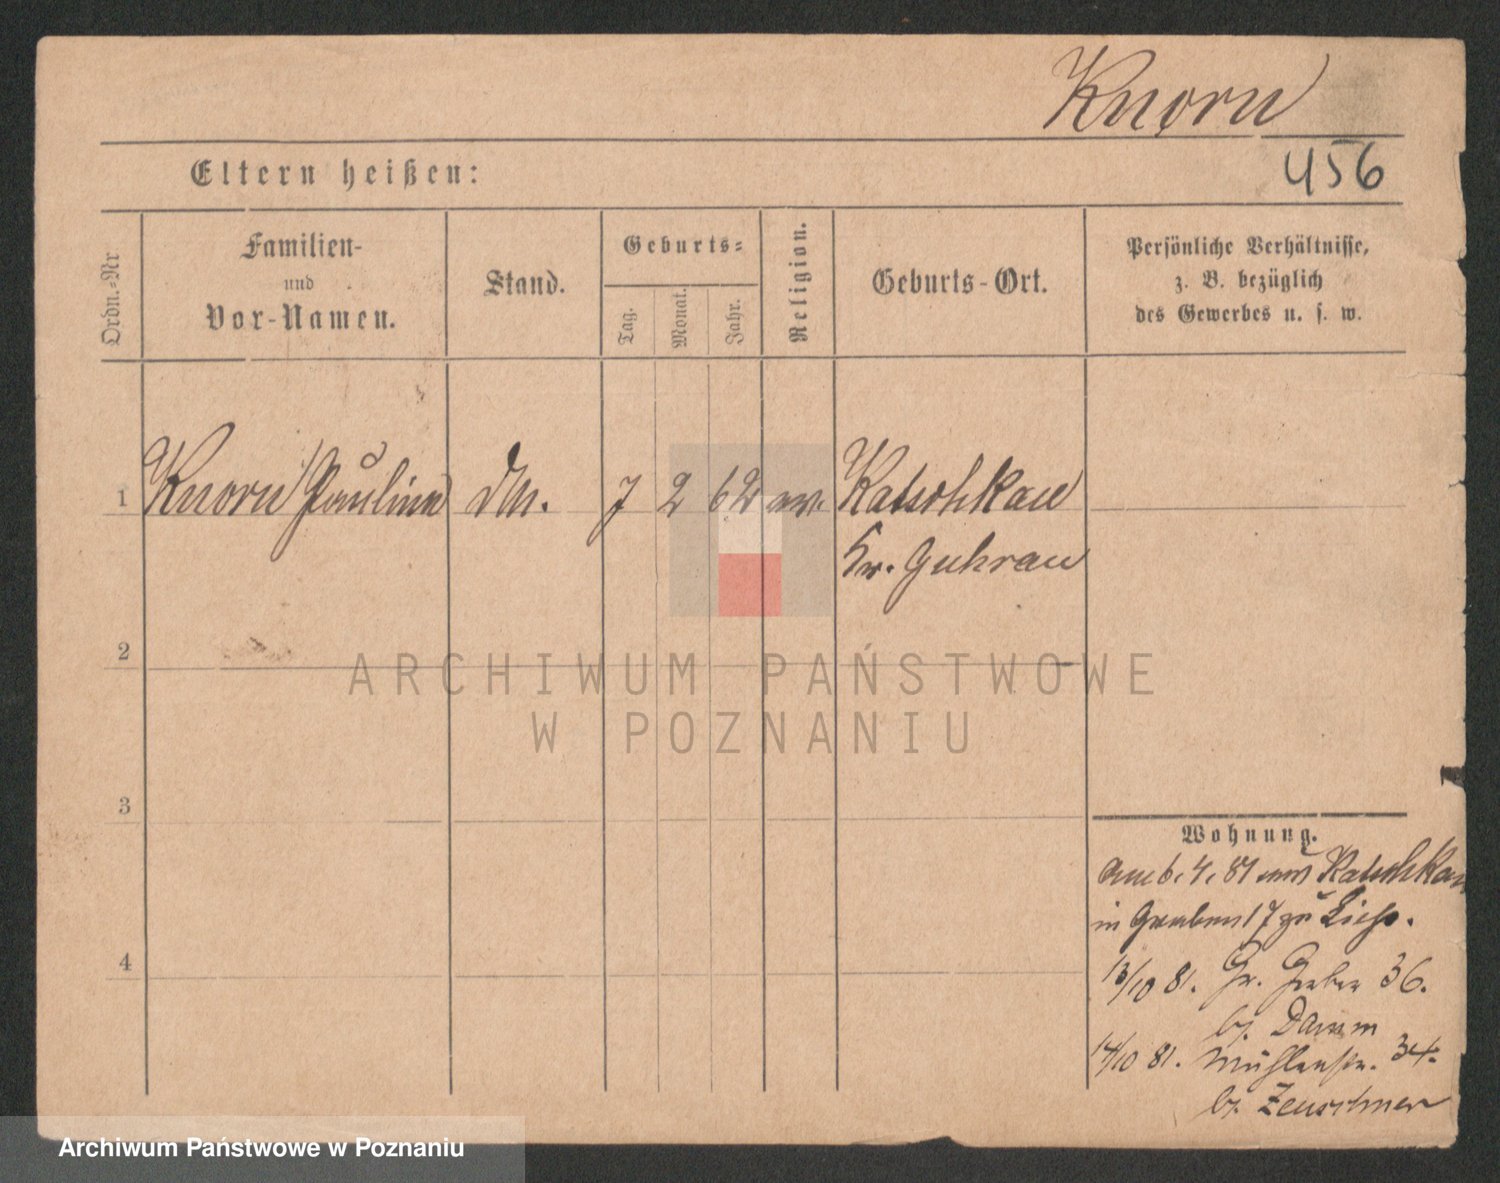 Knorn
456
Eltern heißen:
Ordn.-Nr
Familien-
und
Vor-Namen.
Stand.
Geburts-
Tag.
Monat.
Jahr.
Religion.
Geburts-Ort.
Persönliche Verhältnisse,
z. B. bezüglich
des Gewerbes u. s. w.
1 Knorn Pauline 7 2 62 Katschkau
Kr. Guhrau
2
3
4
Wohnung.
am 6. 4. 81 aus Katschkau
in Graben 17 zu
13/10 81. Gr. Gerber 36.
bj. Damm
14/10 81. Mühlenstr. 34.
bj. Zeuschner
ARCHIWUM PAŃSTWOWE
W POZNANIU
Archiwum Państwowe w Poznaniu